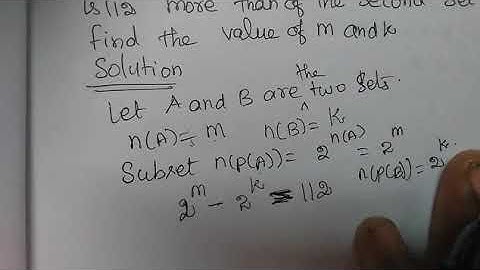 is 112 more than of the second set
find the value of m and k
Solution
Let A and B are the two sets.
n(A) = m n(B) = k
Subset n(P(A)) = 2^n(A) = 2^m n(P(B)) = 2^k
2^m - 2^k = 112